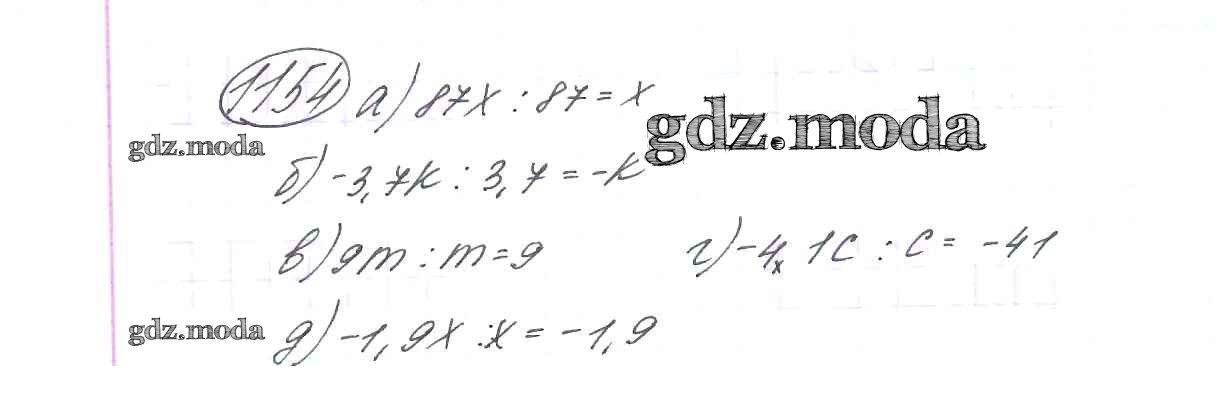 1154 а) 87x : 87 = x
gdz.moda
gdz.moda
б) -3,7k : 3,7 = -k
в) 9m : m = 9 г) -4,1c : c = -41
gdz.moda
д) -1,9x : x = -1,9